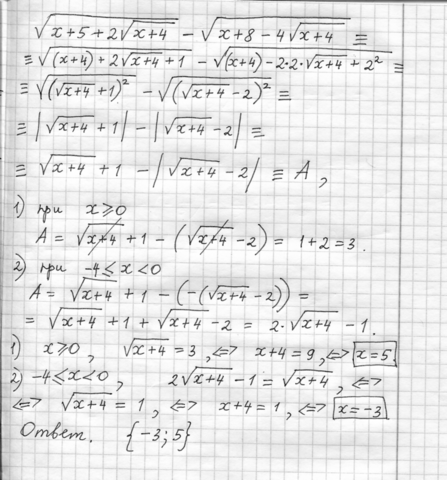 √(x+5+2√(x+4)) − √(x+8−4√(x+4)) ≡
≡ √((x+4)+2√(x+4)+1) − √((x+4)−2·2·√(x+4)+2²) ≡
≡ √((√(x+4)+1)²) − √((√(x+4)−2)²) ≡
≡ |√(x+4)+1| − |√(x+4)−2| ≡
≡ √(x+4)+1−|√(x+4)−2| ≡ A,
1) при x⩾0
A = √(x+4)+1−(√(x+4)−2) = 1+2=3.
2) при −4⩽x<0
A = √(x+4)+1−(−(√(x+4)−2)) =
= √(x+4)+1+√(x+4)−2 = 2·√(x+4)−1.
1) x⩾0, √(x+4)=3, ⟺ x+4=9, ⟺ x=5.
2) −4⩽x<0, 2√(x+4)−1=√(x+4), ⟺
⟺ √(x+4)=1, ⟺ x+4=1, ⟺ x=−3
Ответ. {−3; 5}